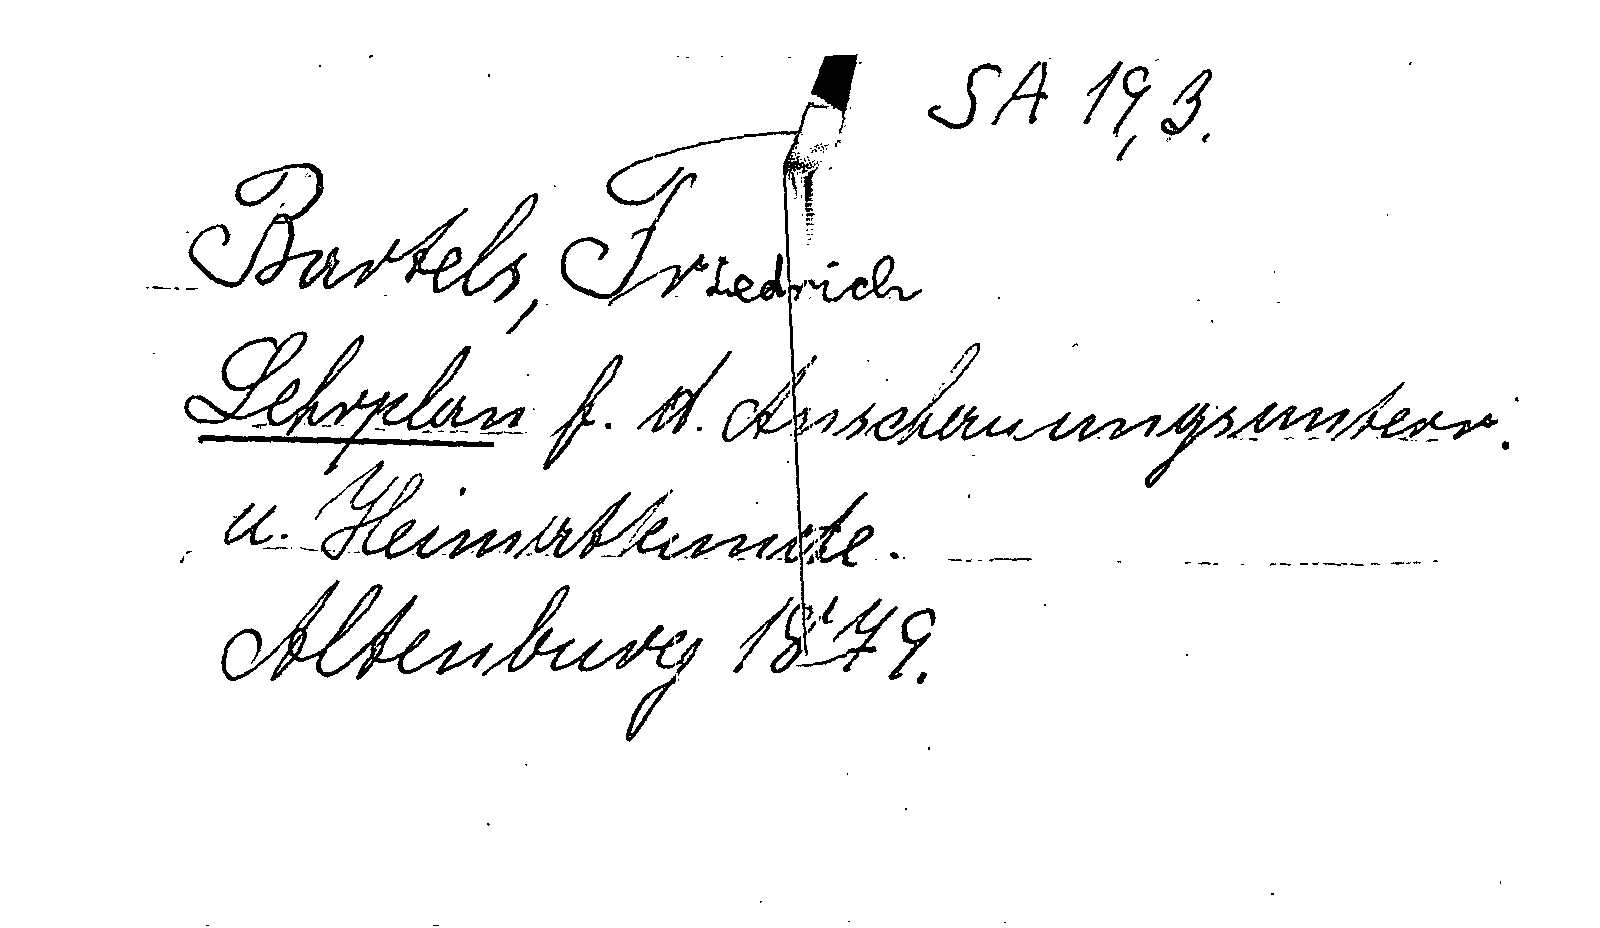 SA 19,3.
Bartels, Friedrich
Lehrplan f. d. Anschauungsunterr.
u. Heimatkunde.
Altenburg 1879.